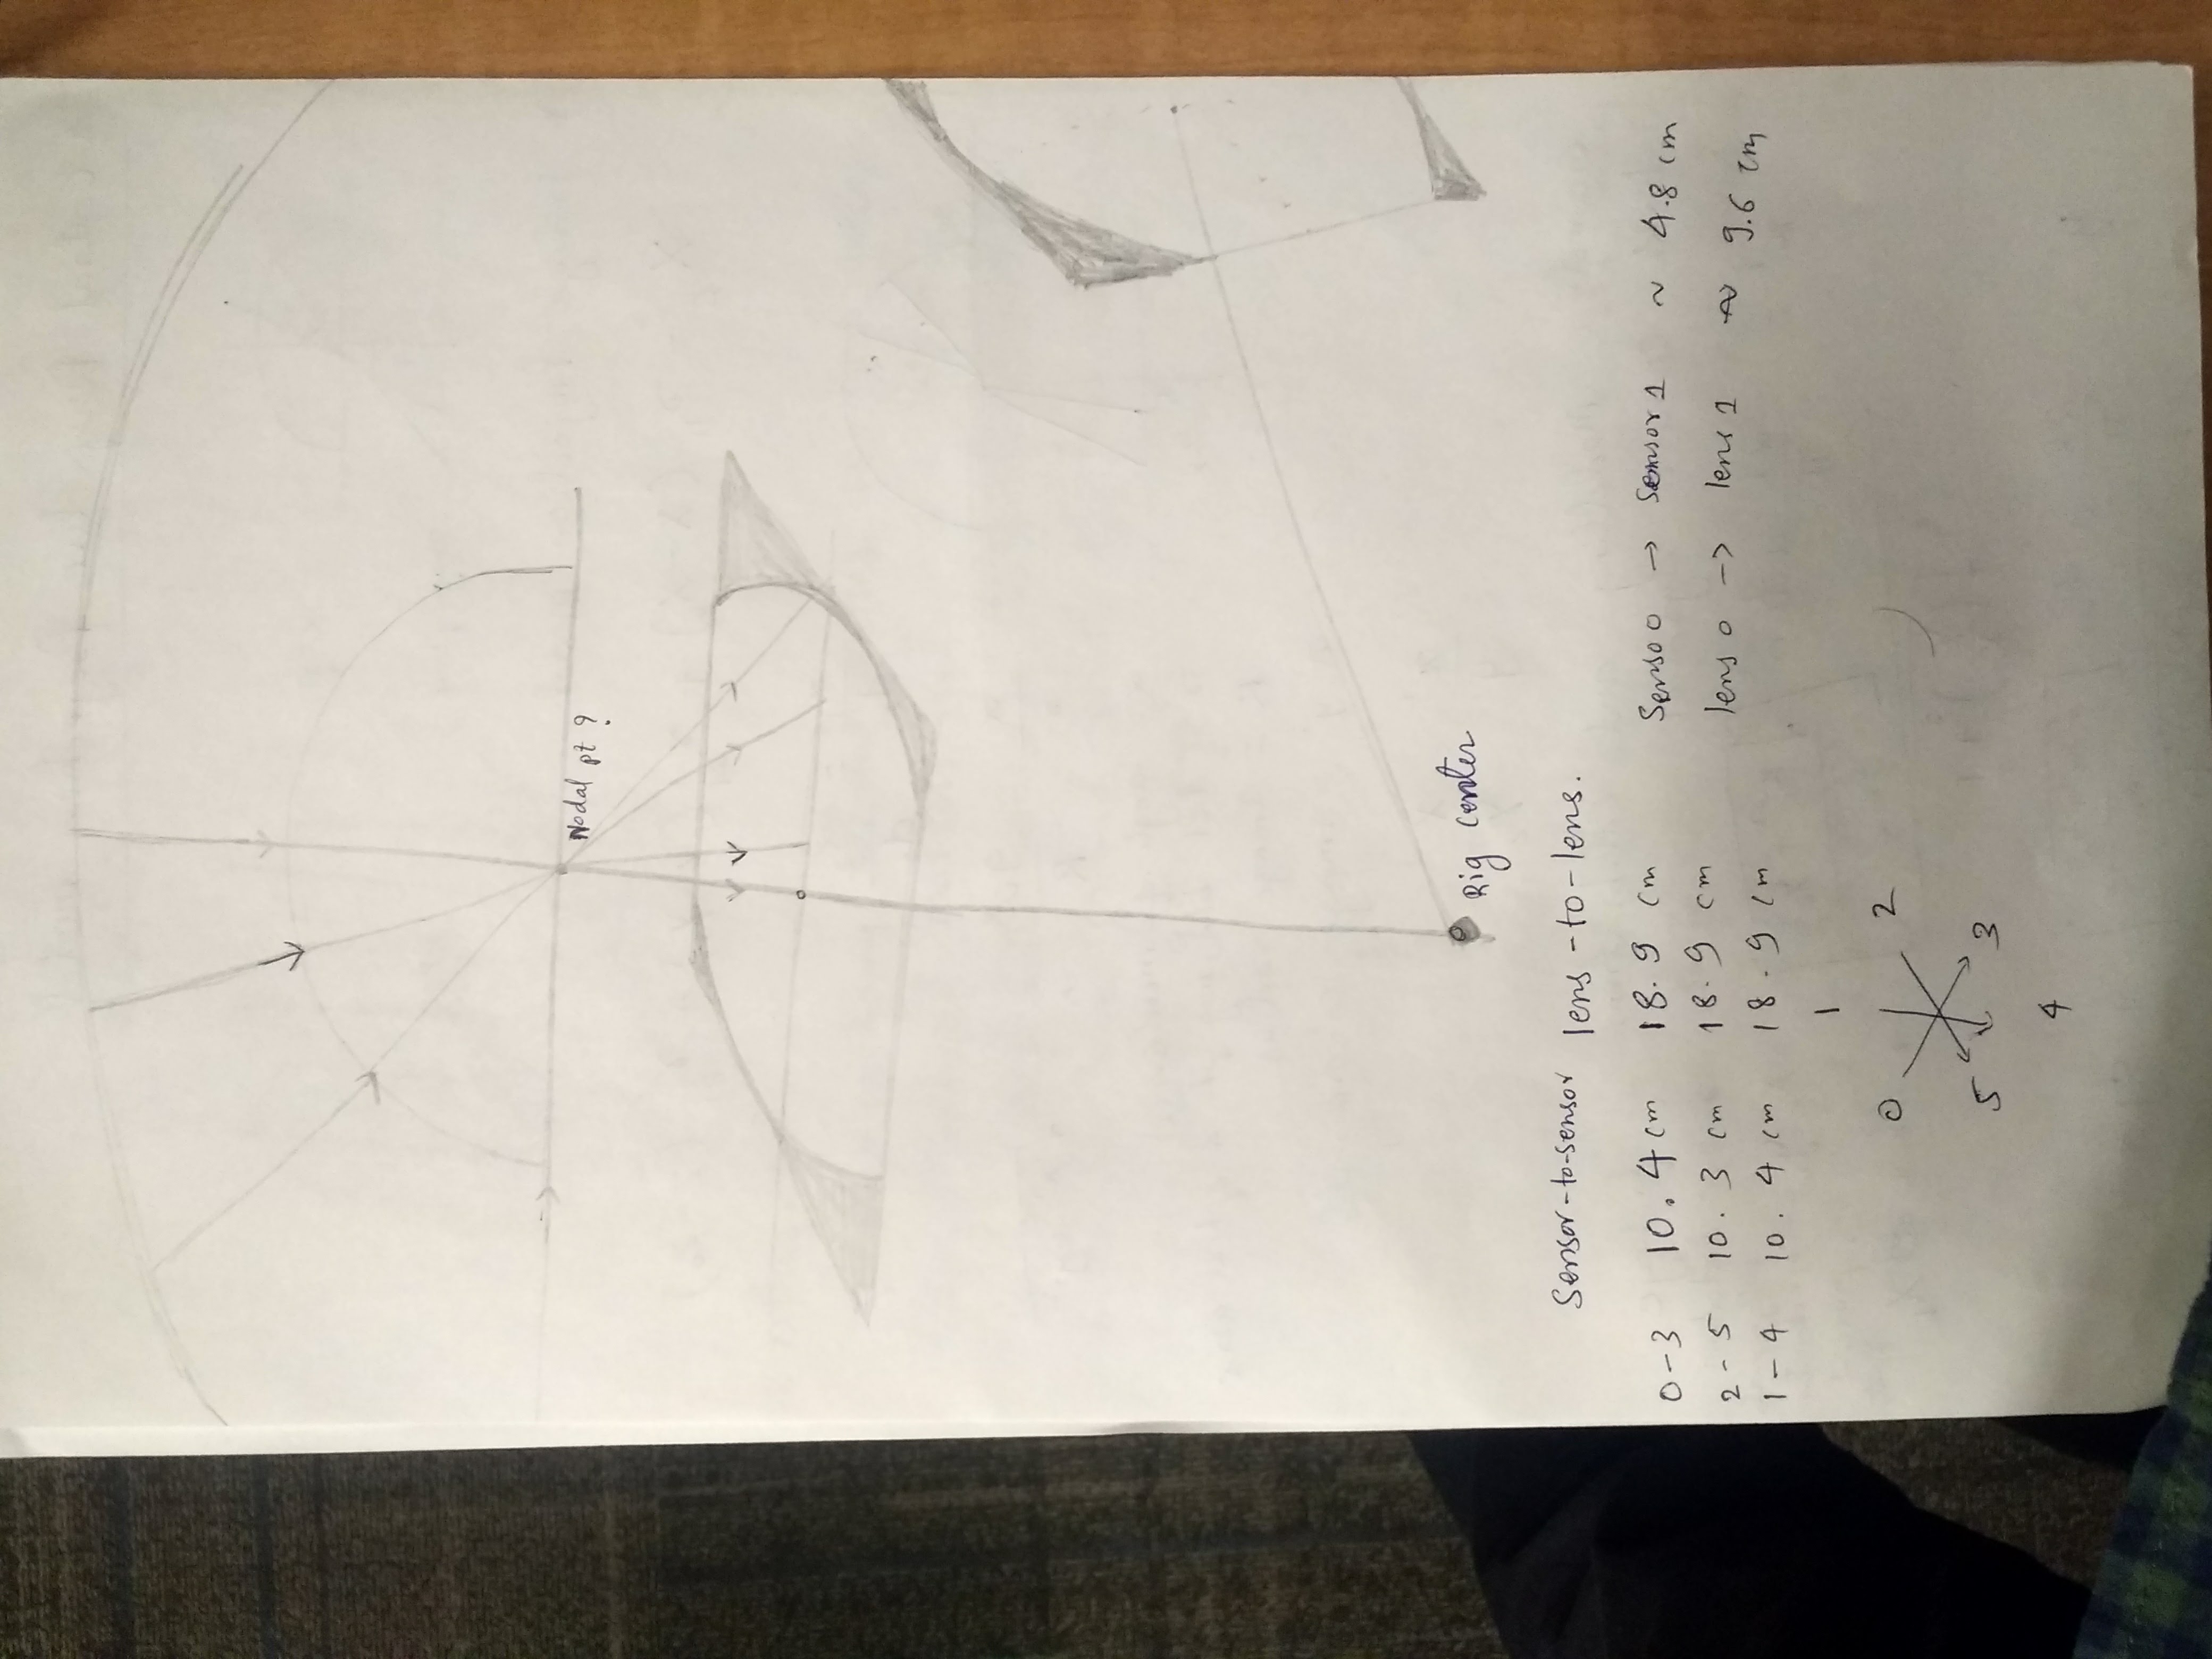 Nodal pt ?
Rig center
Sensor-to-sensor lens-to-lens.
0-3 10.4 cm 18.9 cm
2-5 10.3 cm 18.9 cm
1-4 10.4 cm 18.9 cm
Senso0 → Sensor1 ~ 4.8 cm
lens 0 → lens 1 ~ 9.6 cm
1
0 2
5 3
4